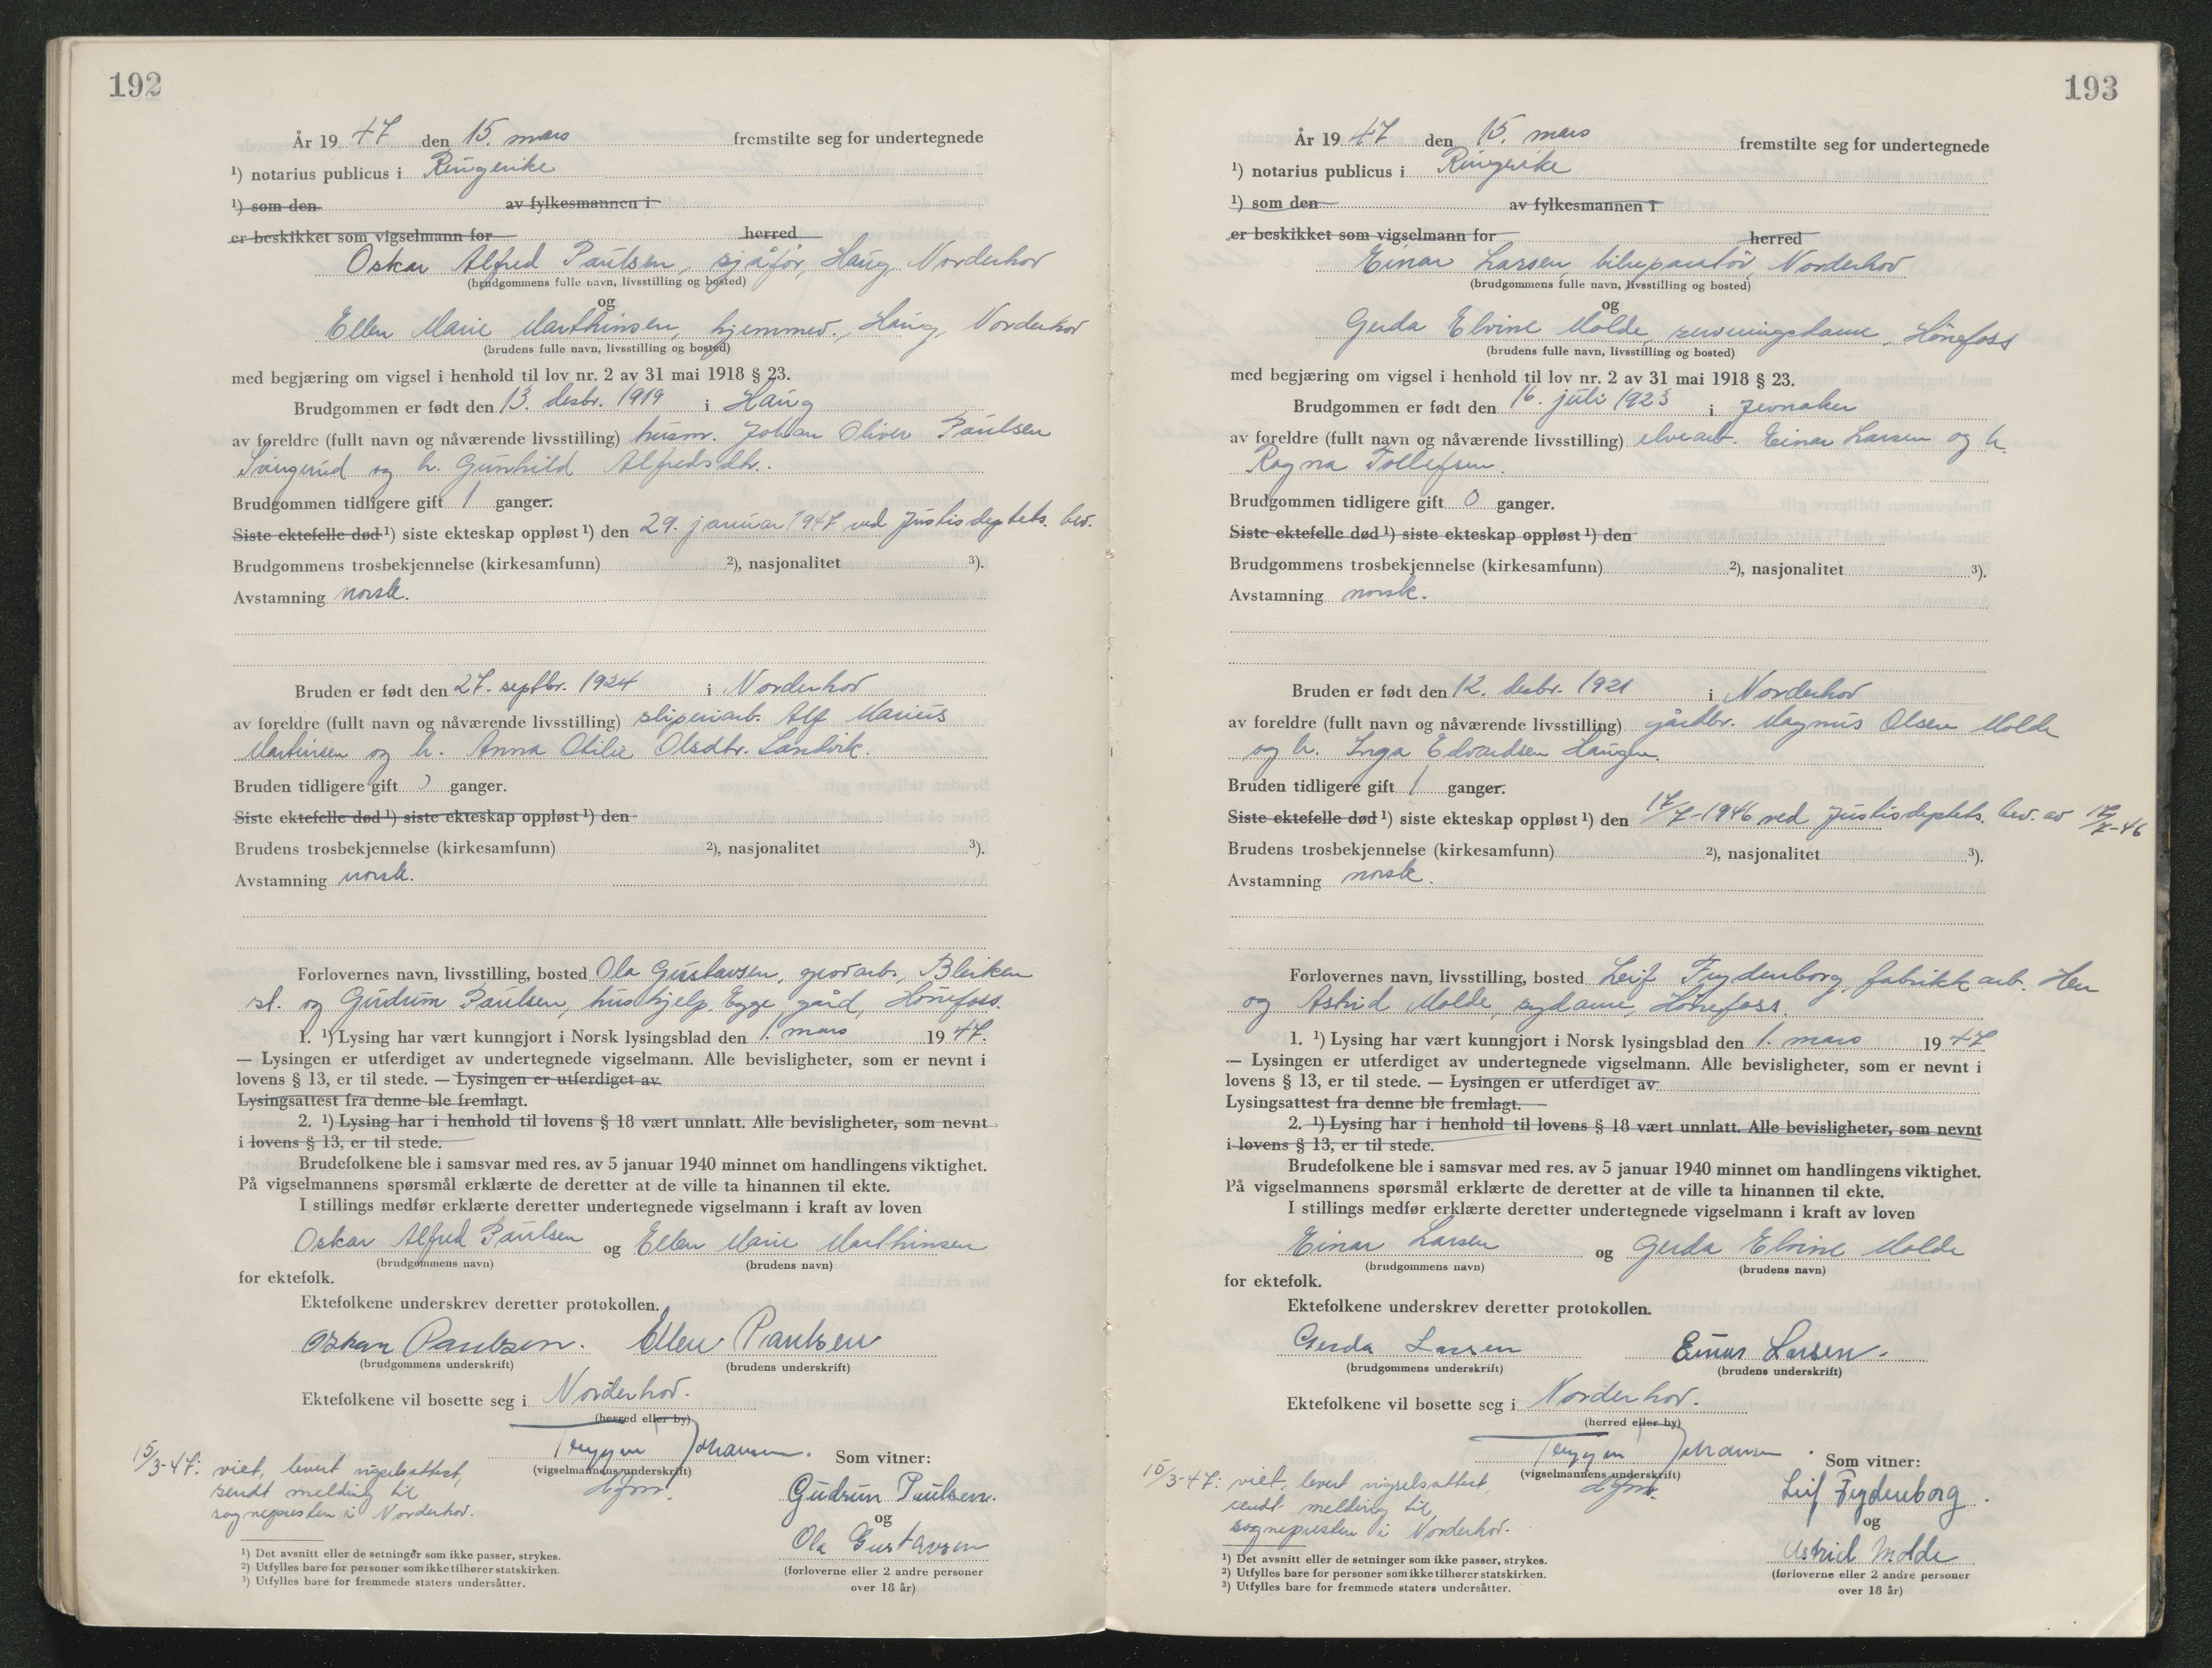 192
År 19 47 den 15. mars fremstilte seg for undertegnede
¹) notarius publicus i Ringerike
¹) som den av fylkesmannen i
er beskikket som vigselmann for herred
Oskar Alfred Paulsen, sjåfør, Haug, Norderhov
(brudgommens fulle navn, livsstilling og bosted)
og
Ellen Marie Marthinsen, hjemmev., Haug, Norderhov
(brudens fulle navn, livsstilling og bosted)
med begjæring om vigsel i henhold til lov nr. 2 av 31 mai 1918 § 23.
Brudgommen er født den 13. desbr. 1919 i Haug
av foreldre (fullt navn og nåværende livsstilling) husm. Johan Oliver Paulsen
Svingerud og h. Gunhild Alfredsdtr.
Brudgommen tidligere gift 1 ganger.
Siste ektefelle død ¹) siste ekteskap oppløst ¹) den 29. januar 1947 ved Justisdeptets. bev.
Brudgommens trosbekjennelse (kirkesamfunn) ²), nasjonalitet ³).
Avstamning norsk.
Bruden er født den 27. septbr. 1924 i Norderhov
av foreldre (fullt navn og nåværende livsstilling) sliperiarb. Alf Marius
Martinsen og h. Anna Otilie Olsdtr. Landvik.
Bruden tidligere gift 0 ganger.
Siste ektefelle død ¹) siste ekteskap oppløst ¹) den
Brudens trosbekjennelse (kirkesamfunn) ²), nasjonalitet ³).
Avstamning norsk.
Forlovernes navn, livsstilling, bosted Ola Gustavsen, grovarb., Bleiken
st. og Gudrun Paulsen, hushjelp, Egge gård, Hønefoss.
1. ¹) Lysing har vært kunngjort i Norsk lysingsblad den 1. mars 19 47.
— Lysingen er utferdiget av undertegnede vigselmann. Alle bevisligheter, som er nevnt i
lovens § 13, er til stede. — Lysingen er utferdiget av
Lysingsattest fra denne ble fremlagt.
2. ¹) Lysing har i henhold til lovens § 18 vært unnlatt. Alle bevisligheter, som nevnt
i lovens § 13, er til stede.
Brudefolkene ble i samsvar med res. av 5 januar 1940 minnet om handlingens viktighet.
På vigselmannens spørsmål erklærte de deretter at de ville ta hinannen til ekte.
I stillings medfør erklærte deretter undertegnede vigselmann i kraft av loven
Oskar Alfred Paulsen og Ellen Marie Marthinsen
(brudgommens navn) (brudens navn)
for ektefolk.
Ektefolkene underskrev deretter protokollen.
Oskar Paulsen. Ellen Paulsen
(brudgommens underskrift) (brudens underskrift)
Ektefolkene vil bosette seg i Norderhov.
(herred eller by)
Tryggve Johansen. Som vitner:
(vigselmannens underskrift)
15/3-47: viet, levert vigselsattest,
sendt melding til
sognepresten i Norderhov.
Gudrun Paulsen.
og
Ola Gustavsen
(forloverne eller 2 andre personer
over 18 år)
¹) Det avsnitt eller de setninger som ikke passer, strykes.
²) Utfylles bare for personer som ikke tilhører statskirken.
³) Utfylles bare for fremmede staters undersåtter.
193
År 19 47 den 15. mars fremstilte seg for undertegnede
¹) notarius publicus i Ringerike
¹) som den av fylkesmannen i
er beskikket som vigselmann for herred
Einar Larsen, bilreparatør, Norderhov
(brudgommens fulle navn, livsstilling og bosted)
og
Gerda Elvine Molde, serveringsdame, Hønefoss
(brudens fulle navn, livsstilling og bosted)
med begjæring om vigsel i henhold til lov nr. 2 av 31 mai 1918 § 23.
Brudgommen er født den 16. juli 1923 i Jevnaker
av foreldre (fullt navn og nåværende livsstilling) elvearb. Einar Larsen og h.
Ragna Tollefsen.
Brudgommen tidligere gift 0 ganger.
Siste ektefelle død ¹) siste ekteskap oppløst ¹) den
Brudgommens trosbekjennelse (kirkesamfunn) ²), nasjonalitet ³).
Avstamning norsk.
Bruden er født den 12. desbr. 1921 i Norderhov
av foreldre (fullt navn og nåværende livsstilling) gårdbr. Magnus Olsen Molde
og h. Inga Edvardsen Haugen.
Bruden tidligere gift 1 ganger.
Siste ektefelle død ¹) siste ekteskap oppløst ¹) den 17/7-1946 ved Justisdeptets. bev. av 17/7-46
Brudens trosbekjennelse (kirkesamfunn) ²), nasjonalitet ³).
Avstamning norsk.
Forlovernes navn, livsstilling, bosted Leif Frydenborg, fabrikkarb. Hen
og Astrid Molde, sydame, Hønefoss.
1. ¹) Lysing har vært kunngjort i Norsk lysingsblad den 1. mars 19 47
— Lysingen er utferdiget av undertegnede vigselmann. Alle bevisligheter, som er nevnt i
lovens § 13, er til stede. — Lysingen er utferdiget av
Lysingsattest fra denne ble fremlagt.
2. ¹) Lysing har i henhold til lovens § 18 vært unnlatt. Alle bevisligheter, som nevnt
i lovens § 13, er til stede.
Brudefolkene ble i samsvar med res. av 5 januar 1940 minnet om handlingens viktighet.
På vigselmannens spørsmål erklærte de deretter at de ville ta hinannen til ekte.
I stillings medfør erklærte deretter undertegnede vigselmann i kraft av loven
Einar Larsen og Gerda Elvine Molde
(brudgommens navn) (brudens navn)
for ektefolk.
Ektefolkene underskrev deretter protokollen.
Gerda Larsen Einar Larsen.
(brudgommens underskrift) (brudens underskrift)
Ektefolkene vil bosette seg i Norderhov.
(herred eller by)
Tryggve Johansen. Som vitner:
(vigselmannens underskrift)
15/3-47: viet, levert vigselsattest,
sendt melding til
sognepresten i Norderhov.
Leif Frydenborg.
og
Astrid Molde
(forloverne eller 2 andre personer
over 18 år)
¹) Det avsnitt eller de setninger som ikke passer, strykes.
²) Utfylles bare for personer som ikke tilhører statskirken.
³) Utfylles bare for fremmede staters undersåtter.